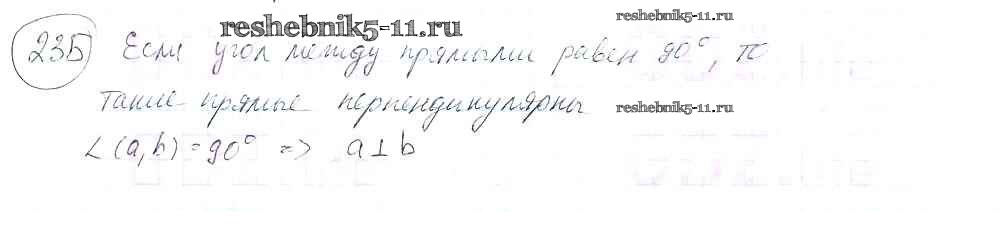 reshebnik5-11.ru
reshebnik5-11.ru
235 Если угол между прямыми равен 90°, то
такие прямые перпендикулярны
reshebnik5-11.ru
∠(a,b)=90° => a⊥b